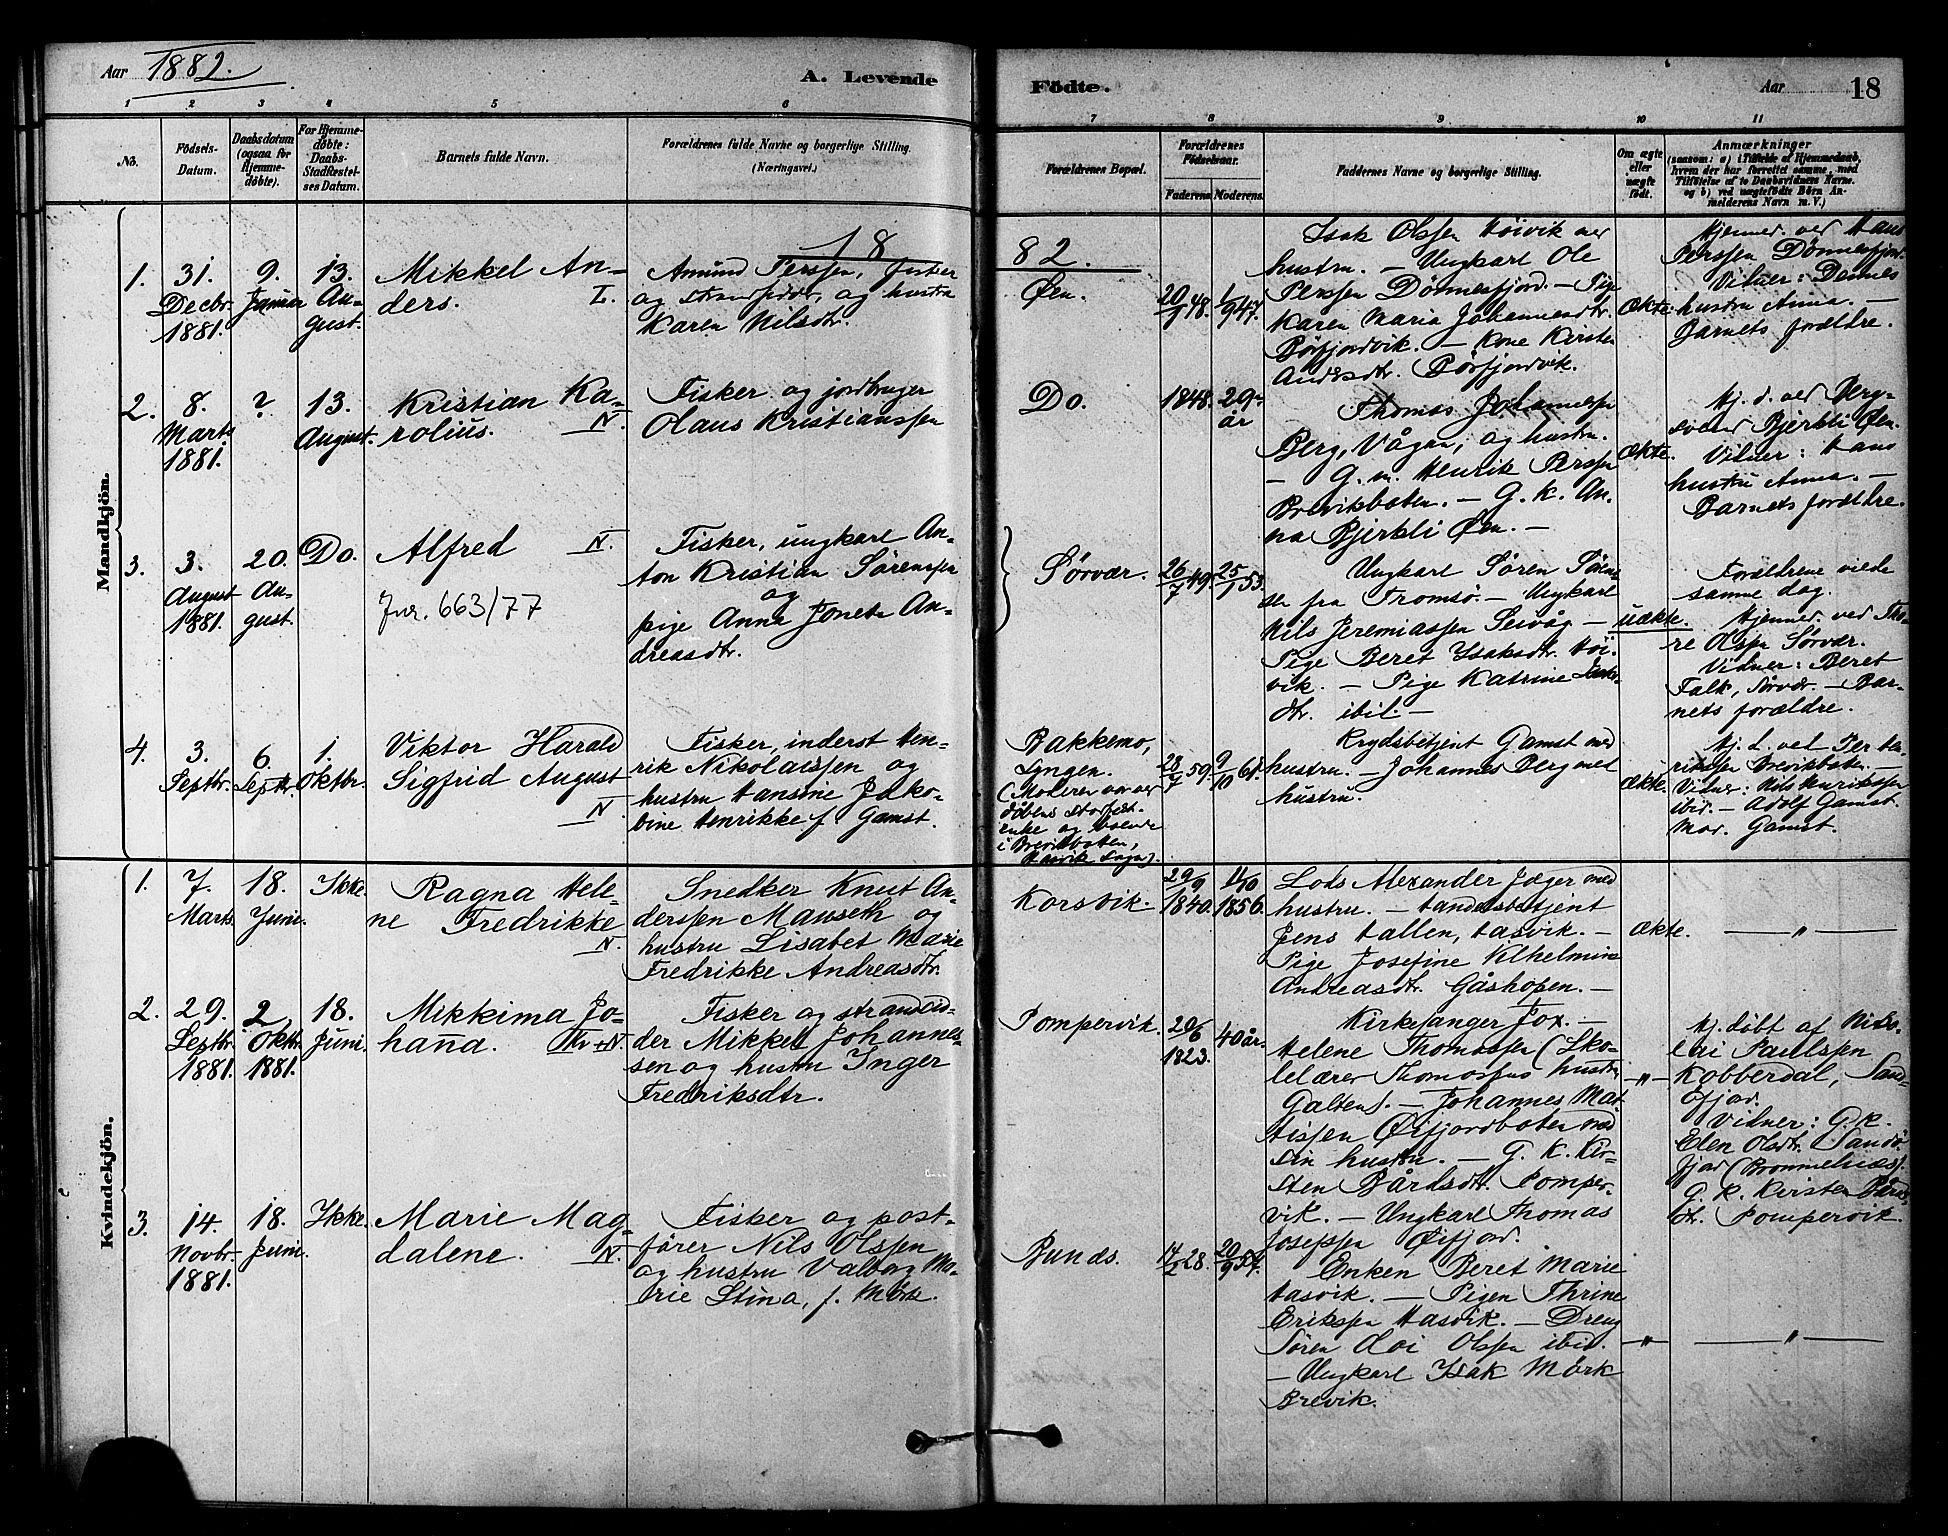 Aar 1882.
A. Levende
Födte.
Aar
18
1 2 3 4 5 6
7 8 9 10 11
No.
Födsels-
Datum.
Daabsdatum
(ogsaa for
Hjemme-
döbte).
For Hjemme-
döbte:
Daabs-
Stadfæstel-
ses Datum.
Barnets fulde Navn.
Forældrenes fulde Navne og borgerlige Stilling.
(Næringsvei.)
Forældrenes Bopæl.
Forældrenes
Födselsaar.
Faderens. Moderens.
Faddernes Navne og borgerlige Stilling.
Om ægte
eller
uægte
födt.
Anmærkninger
(saasom: a) i Tilfælde af Hjemmedaab,
hvem der har forrettet samme, med
Tilföielse af to Daabsvidners Navne.
og b) ved uægtefödte Börn An-
melderens Navn m. V.)
Mandkjön.
18
82.
1.
31.
Decbr.
1881.
9.
Januar
13.
Au-
gust.
Mikkel An-
ders. L.
Amund Perssen, fisker
og strandsidder, og hustru
Karen Nilsdtr.
Øen.
20/7 48.
1/9 47.
Isak Olssen Høivik med
hustru. — Ungkarl Ole
Perssen Dönnesfjord. — Pige
Karen Maria Johannesdtr.
Börfjordvik. — Kone Kirsten
Andersdtr. Börfjordvik.
Ækte.
Hjemmed. ved Hans
Perssen Dönnesfjord.
Vidner: Dennes
hustru Anna. —
Barnets forældre.
2.
8.
Marts
1881.
?
13.
August.
Kristian Ka-
rolius. N.
Fisker og jordbruger
Olaus Kristianssen
Do.
1848.
29
år
Thomas Johannessen
Berg, Vågen, og hustru.
— G. m. Henrik Perssen
Breivikbotn. — G. k. An-
na Bjerkli Øen. —
Ækte.
Hj. d. ved Berg-
svend Bjerkli Øen.
Vidner: Hans
hustru Anna. —
Barnets forældre.
3.
3.
August
1881.
20.
Au-
gust.
Do.
Alfred N.
Jnr. 663/77
Fisker, ungkarl An-
ton Kristian Sørenssen
og
pige Anna Jonetta An-
dreasdtr.
Sørvær.
26/7 49.
25/1 53.
Ungkarl Søren Søren-
sen fra Tromsø. — Ungkarl
Nils Jeremiassen Seivåg —
Pige Beret Isaksdtr. Høi-
vik. — Pige Katrine
dtr. ibid. —
uækte.
Forældrene viede
samme dag.
Hjemmed. ved Tho-
re Olssen Sørvær.
Vidner: Beret
Falk, Sørvær. — Bar-
nets forældre.
4.
3.
Septbr.
6.
Septbr.
1.
Oktbr.
Viktor Harald
Sigfrid August
N.
Fisker, inderst Hen-
rik Nikolaissen og
hustru Hansine Jako-
bine Henrikke f Gamst.
Bakkemo,
Lyngen.
(Moderen var ved
dåbens stadfæst-
else og boende
i Breivikbotn,
Hasvik sogn).
28/7 59.
9/10 61.
Krydsbetjent Gamst med
hustru. — Johannes Berg med
hustru.
Ækte.
Hj. d. ved Per Hen-
rikssen Breivikbotn. —
Vidner: Nils Henrikssen
ibid. — Adolf Gamst.
Mar. Gamst.
Kvindekjön.
1.
7.
Marts.
18.
Juni.
Ikke.
Ragna Hele-
ne Fredrikke
N.
Snedker Knut An-
derssen Mauseth og
hustru Lisabet Marie
Fredrikke Andreasdtr.
Korsvik.
29/9
1840.
11/10
1856.
Lods Alexander Jæger med
hustru. — Handelsbetjent
Jens Hallen, Hasvik. —
Pige Josefine Vilhelmine
Andreasdtr. Gåshopen. —
Ækte.
— " —
2.
29.
Septbr.
1881.
2
Oktbr.
1881.
18.
Juni.
Mikkima Jo-
hana. Kv + N.
Fisker og strandsid-
der Mikkel Johannes-
sen og hustru Inger
Fredriksdtr.
Pompervik.
20/6
1823.
40 år.
Kirkesanger Fox. —
Helene Thomassen (Sko-
lelærer Thomassens hustru
Galten). — Johannes Mat-
tissen Øifjordboten med
sin hustru. — G. K. Kir-
sten Bårdsdtr. Pomper-
vik. — Ungkarl Thomas
Josefssen Øifjord.
— " —
Hj. døbt af Niko-
lai Paulssen
Kobberdal, Sand-
øfjord.
Vidner: G. k.
Elen Olsdtr. (Sandø-
fjord (Brommelnæs).
G. k. Kirsten Bårds-
dt. Pompervik.
3.
14.
Novbr.
1881.
18.
Juni.
Ikke.
Marie Mag-
dalene. N.
Fisker og post-
fører Nils Olssen
og hustru Valborg Ma-
rie Stina, f. Mørk.
Bunæs.
14/2 28.
20/9 54.
Enken Beret Marie
Hasvik. — Pigen Thrine
Erikssen Hasvik. — Dreng
Søren Loi Olssen ibid.
— Ungkarl Isak Mörk
Breivik.
— " —
— " —